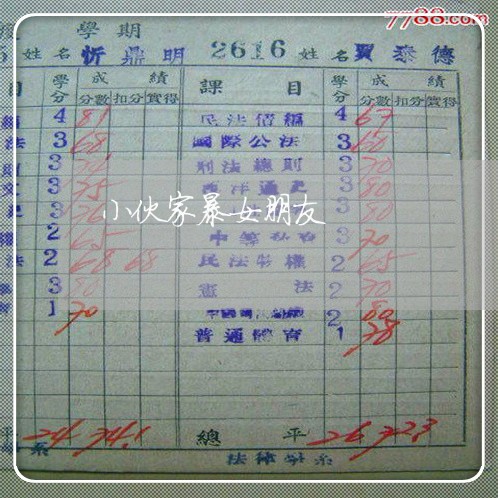 7788.com
學期
姓名 忻鼎明 2616 姓名 賈泰德
目 學分 成績 課目 學分 成績
分數 扣分 實得 分數 扣分 實得
4 81 民法債編 4 67
法 3 68 國際公法 3 60
3 刑法總則 3 70
3 75 西洋通史 3 80
3 3 80
權 2 65 3 70
法 2 68 68 民法物權 2 65
3 80 憲法 2 70
1 70 2 80
普通體育 1 78
小伙家暴女朋友
平 24 74.1 總平 26 72.3
系 法律學系